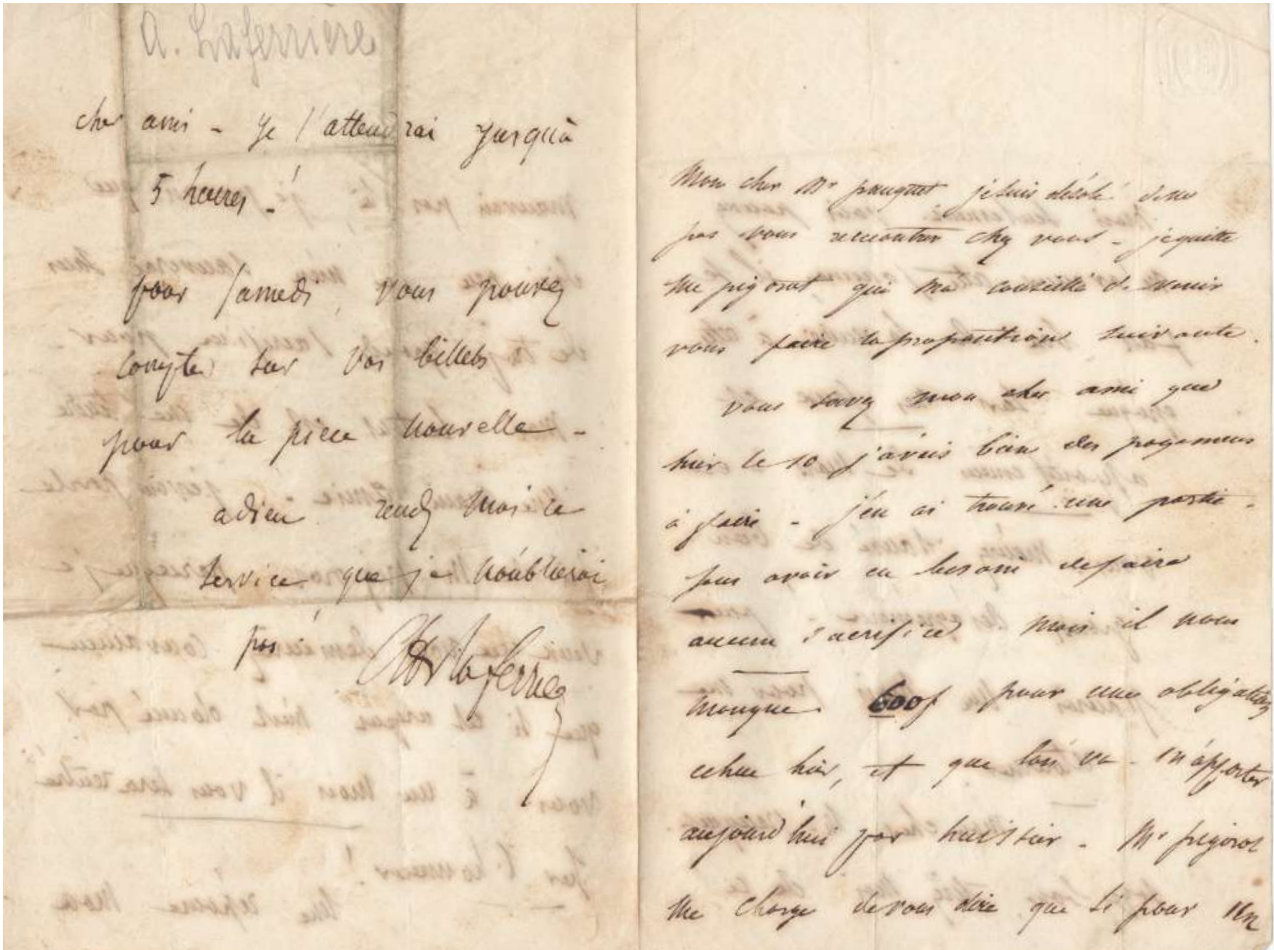 A. Laferrière
cher ami - je l'attendrai jusqu'à
5 heures !
pour samedi, vous pouvez
compter sur vos billets
pour la pièce nouvelle -
adieu. rendez moi ce
service que je n'oublierai
pas
Laferrière
Mon cher Mr pauquet je suis désolé de ne
pas vous rencontrer chez vous - je quitte
Mr pigorot qui m'a conseillé de venir
vous faire la proposition suivante.
vous savez mon cher ami que
hier le 10 j'avais bien des payemens
à faire - j'en ai trouvé une partie -
sans avoir eu besoin de faire
aucun sacrifice mais il nous
manque 600f pour une obligation
échue hier, et que l'on va m'apporter
aujourd'hui par huissier - Mr pigorot
me charge de vous dire que si pour un